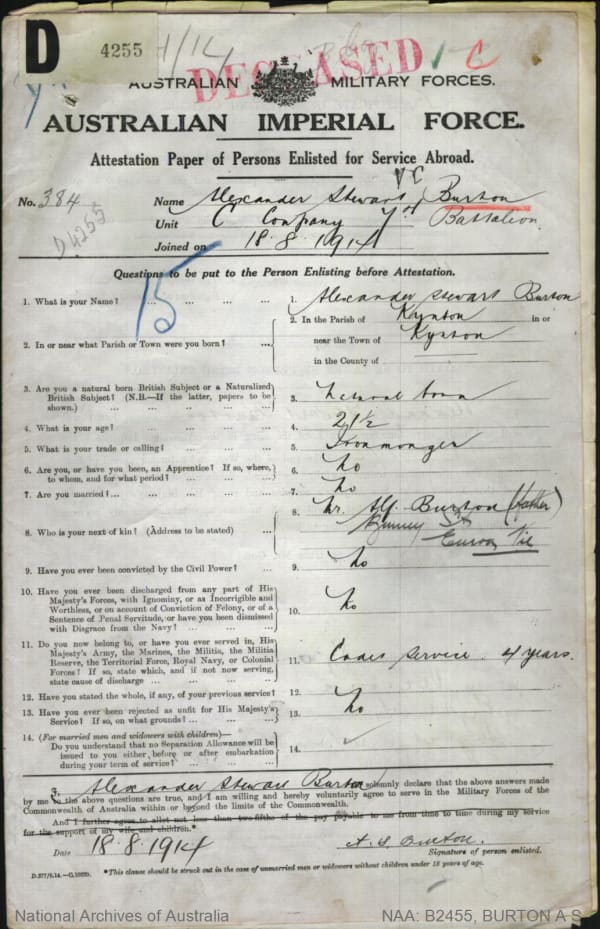 D
4255
DECEASED
AUSTRALIAN MILITARY FORCES.
AUSTRALIAN IMPERIAL FORCE.
Attestation Paper of Persons Enlisted for Service Abroad.
VC
No. 384 Name Alexander Stewart Burton
D4255
Unit C Company 7th Battalion
Joined on 18.8.1914
Questions to be put to the Person Enlisting before Attestation.
15
1. What is your Name? ... ... ... ... 1. Alexander Stewart Burton
2. In or near what Parish or Town were you born? ... 2. In the Parish of Kynton in or
near the Town of Kynton
in the County of
3. Are you a natural born British Subject or a Naturalized British Subject? (N.B.—If the latter, papers to be shown.) ... ... ... ... 3. Natural born
4. What is your age? ... ... ... ... 4. 21½
5. What is your trade or calling? ... ... ... 5. Ironmonger
6. Are you, or have you been, an Apprentice? If so, where, to whom, and for what period? ... ... ... 6. No
7. Are you married? ... ... ... ... 7. No
8. Who is your next of kin? (Address to be stated) ... 8. Mr. Alf. Burton (Father)
St
Euroa, Vic
9. Have you ever been convicted by the Civil Power? ... 9. No
10. Have you ever been discharged from any part of His Majesty's Forces, with Ignominy, or as Incorrigible and Worthless, or on account of Conviction of Felony, or of a Sentence of Penal Servitude, or have you been dismissed with Disgrace from the Navy? ... ... 10. No
11. Do you now belong to, or have you ever served in, His Majesty's Army, the Marines, the Militia, the Militia Reserve, the Territorial Force, Royal Navy, or Colonial Forces? If so, state which, and if not now serving, state cause of discharge ... ... ... 11. Cadet service. 4 years.
12. Have you stated the whole, if any, of your previous service? 12.
13. Have you ever been rejected as unfit for His Majesty's Service? If so, on what grounds? ... ... 13. No
14. (For married men and widowers with children)—
Do you understand that no Separation Allowance will be issued to you either before or after embarkation during your term of service? ... ... ... 14.
I, Alexander Stewart Burton solemnly declare that the above answers made
by me to the above questions are true, and I am willing and hereby voluntarily agree to serve in the Military Forces of the
Commonwealth of Australia within or beyond the limits of the Commonwealth.
And I further agree to allot not less than two-fifths of the pay payable to me from time to time during my service
for the support of my wife and children.*
Date 18.8.1914 A. S. Burton.
Signature of person enlisted.
*This clause should be struck out in the case of unmarried men or widowers without children under 18 years of age.
National Archives of Australia NAA: B2455, BURTON A S